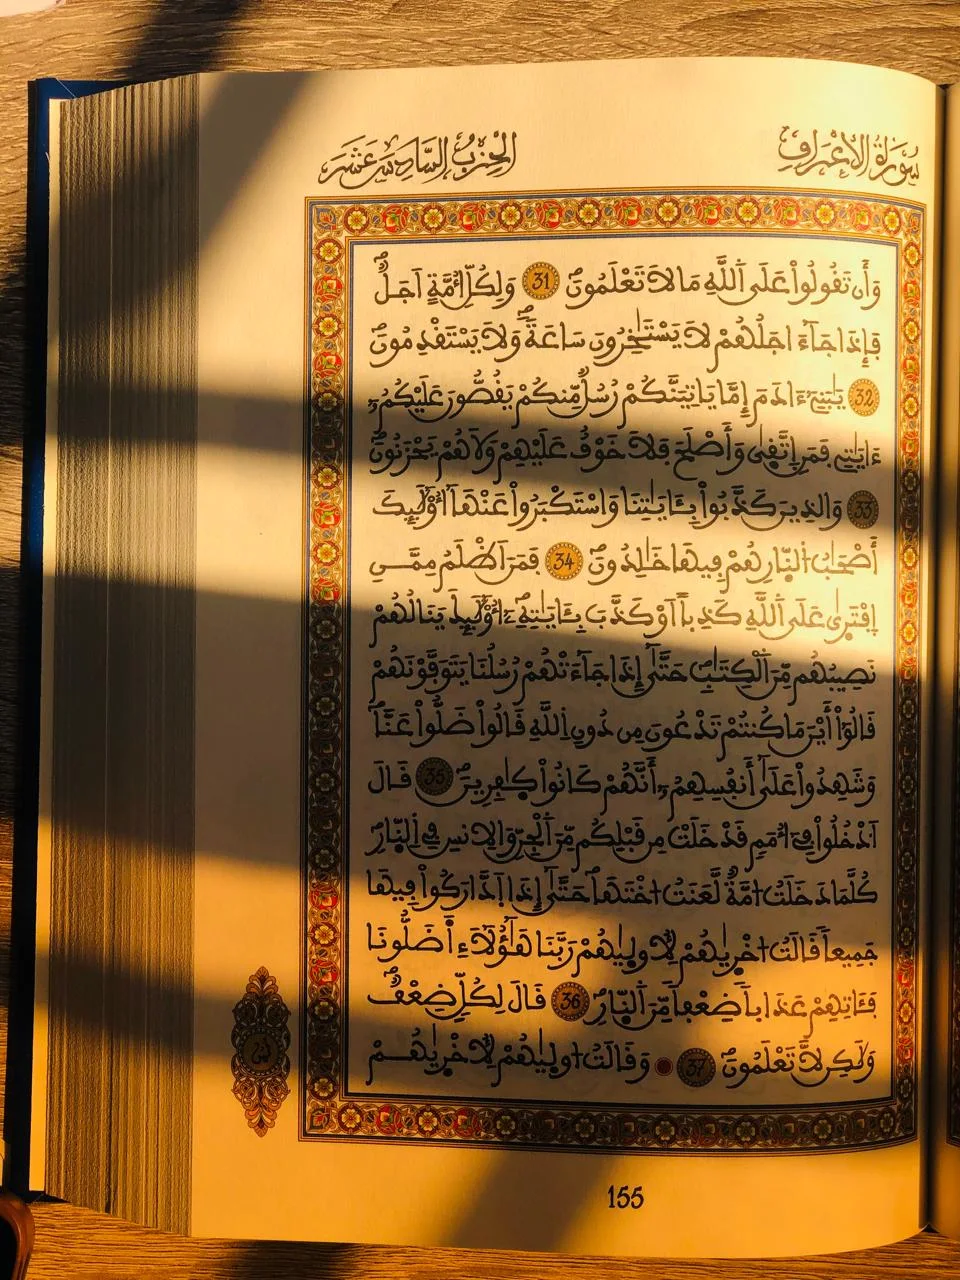 سُورَةُ الأَعْرَافِ
الْحِزْبُ السَّادِسَ عَشَرَ
وَأَن تَقُولُواْ عَلَى اَللَّهِ مَا لاَ تَعْلَمُونَ 31 وَلِكُلِّ أُمَّةٍ اَجَلٌ
فَإِذَا جَآءَ اجَلُهُمْ لاَ يَسْتَٰخِرُونَ سَاعَةً وَلاَ يَسْتَقْدِمُونَ
32 يَٰبَنِےٓ ءَادَمَ إِمَّا يَاتِيَنَّكُمْ رُسُلٌ مِّنكُمْ يَقُصُّونَ عَلَيْكُمُۥٓ
ءَايَٰتِے فَمَنِ اِتَّق۪ىٰ وَأَصْلَحَ فَلاَ خَوْفٌ عَلَيْهِمْ وَلاَ هُمْ يَحْزَنُونَ
33 وَالذِينَ كَذَّبُواْ بِـَٔايَٰتِنَا وَاسْتَكْبَرُواْ عَنْهَآ أُوْلَٰٓئِكَ
أَصْحَٰبُ اُلنّ۪ارِ هُمْ فِيهَا خَٰلِدُونَ 34 فَمَنَ اَظْلَمُ مِمَّنِ
اِفْتَر۪ىٰ عَلَى اَللَّهِ كَذِباً اَوْ كَذَّبَ بِـَٔايَٰتِهِۦٓ أُوْلَٰٓئِكَ يَنَالُهُمْ
نَصِيبُهُم مِّنَ اَلْكِتَٰبِ حَتَّىٰٓ إِذَا جَآءَتْهُمْ رُسُلُنَا يَتَوَفَّوْنَهُمْ
قَالُوٓاْ أَيْنَ مَا كُنتُمْ تَدْعُونَ مِن دُونِ اِللَّهِ قَالُواْ ضَلُّواْ عَنَّا
وَشَهِدُواْ عَلَىٰٓ أَنفُسِهِمُۥٓ أَنَّهُمْ كَانُواْ كٰ۪فِرِينَ 35 قَالَ
اَدْخُلُواْ فِےٓ أُمَمٍ قَدْ خَلَتْ مِن قَبْلِكُم مِّنَ اَلْجِنِّ وَالِانسِ فِے اِلنّ۪ارِ
كُلَّمَا دَخَلَتُ امَّةٌ لَّعَنَتُ اخْتَهَا حَتَّىٰٓ إِذَا اَدَّارَكُواْ فِيهَا
جَمِيعاً قَالَتُ اخْر۪يٰهُمْ لِأُول۪يٰهُمْ رَبَّنَا هَٰٓؤُلَآءِ اَ۬ضَلُّونَا
فَـَٔاتِهِمْ عَذَاباً ضِعْفاً مِّنَ اَلنّ۪ارِ 36 قَالَ لِكُلٍّ ضِعْفٌ
وَلَٰكِن لاَّ تَعْلَمُونَ 37 وَقَالَتُ اول۪يٰهُمْ لِأُخْر۪يٰهُمْ
155